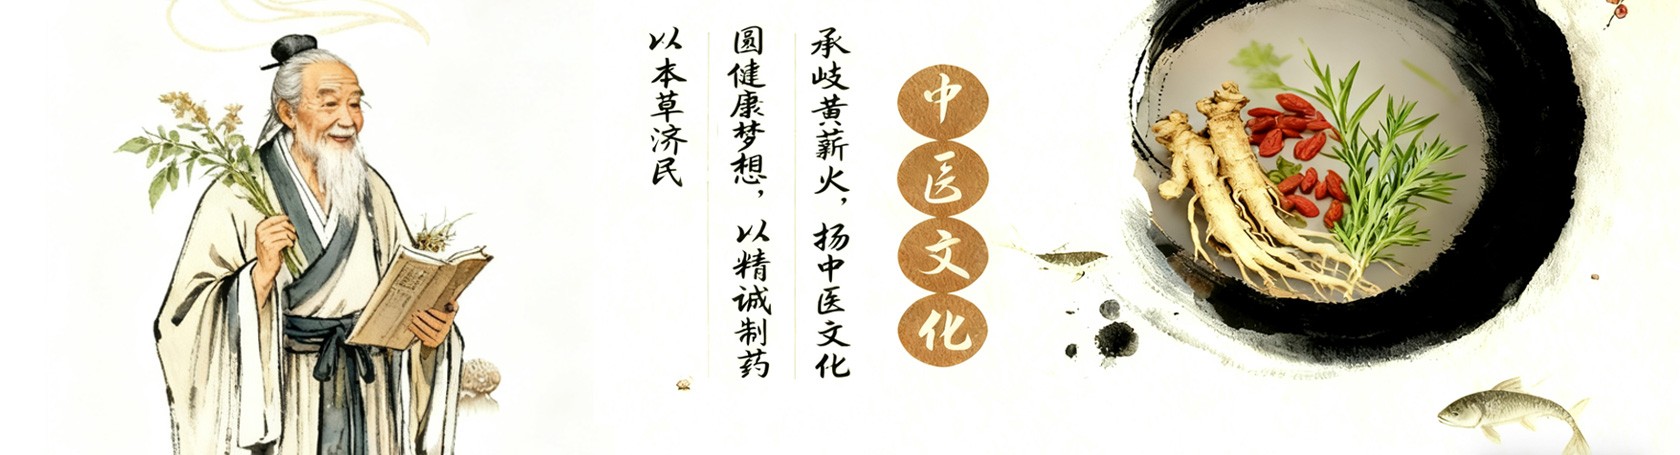 中医文化
承岐黄薪火，扬中医文化
圆健康梦想，以精诚制药
以本草济民